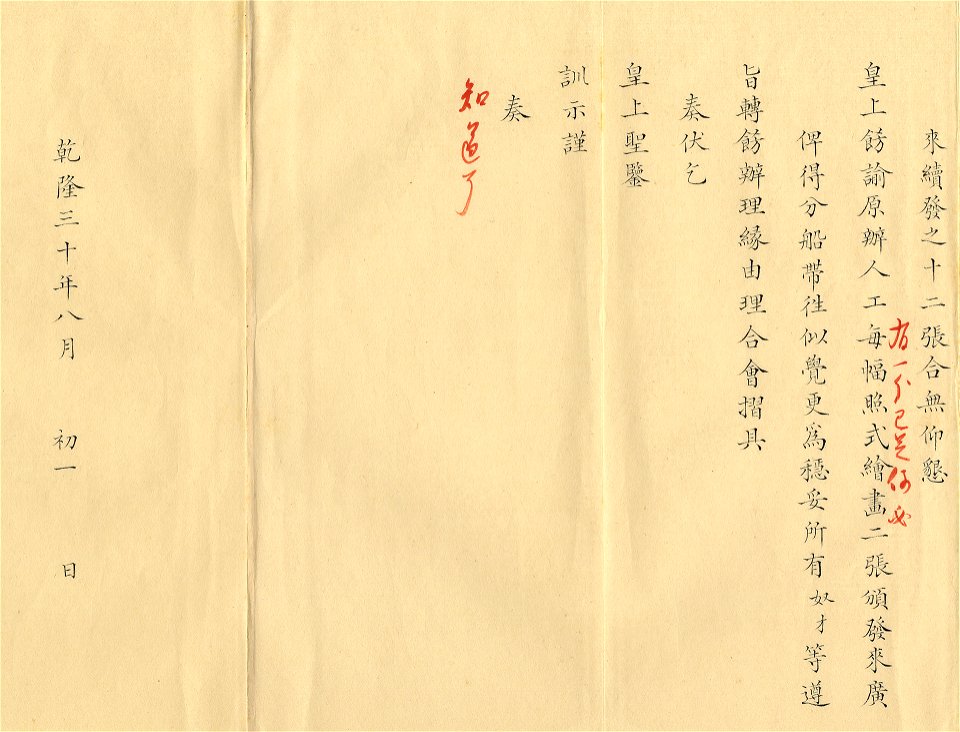 來續發之十二張合無仰懇
有一分已足何必
皇上飭諭原辦人工每幅照式繪畫二張頒發來廣
俾得分船帶往似覺更為穩妥所有奴才等遵
旨轉飭辦理緣由理合會摺具
奏伏乞
皇上聖鑒
訓示謹
奏
知道了
乾隆三十年八月 初一 日